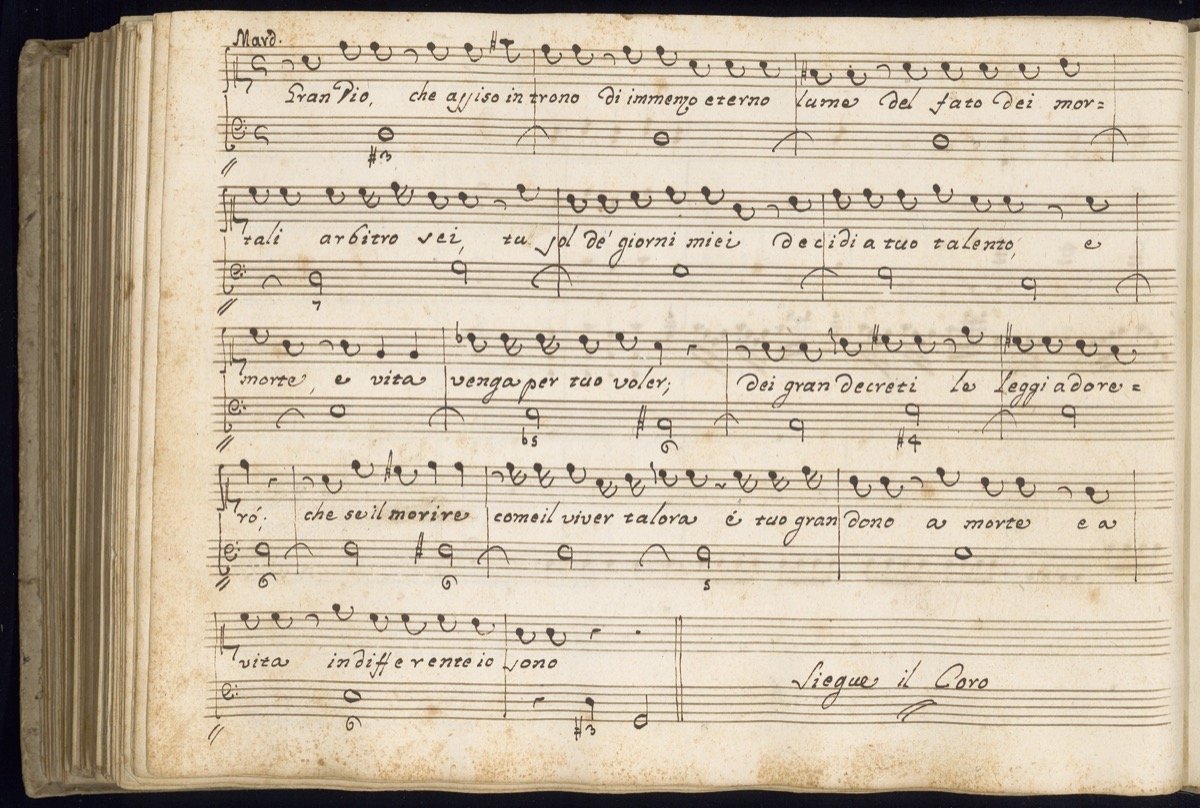 Mard.
Gran Dio, che assiso in trono di immenzo eterno lume del fato dei mor=
#3
tali arbitro sei, tu sol de' giorni miei decidi a tuo talento, e
7
morte, e vita venga per tuo voler; dei gran decreti le leggi adore=
b5 6 #4
rò; che se il morire come il viver talora é tuo gran dono a morte e a
6 6 5
vita indifferente io sono
Siegue il Coro
6 #3